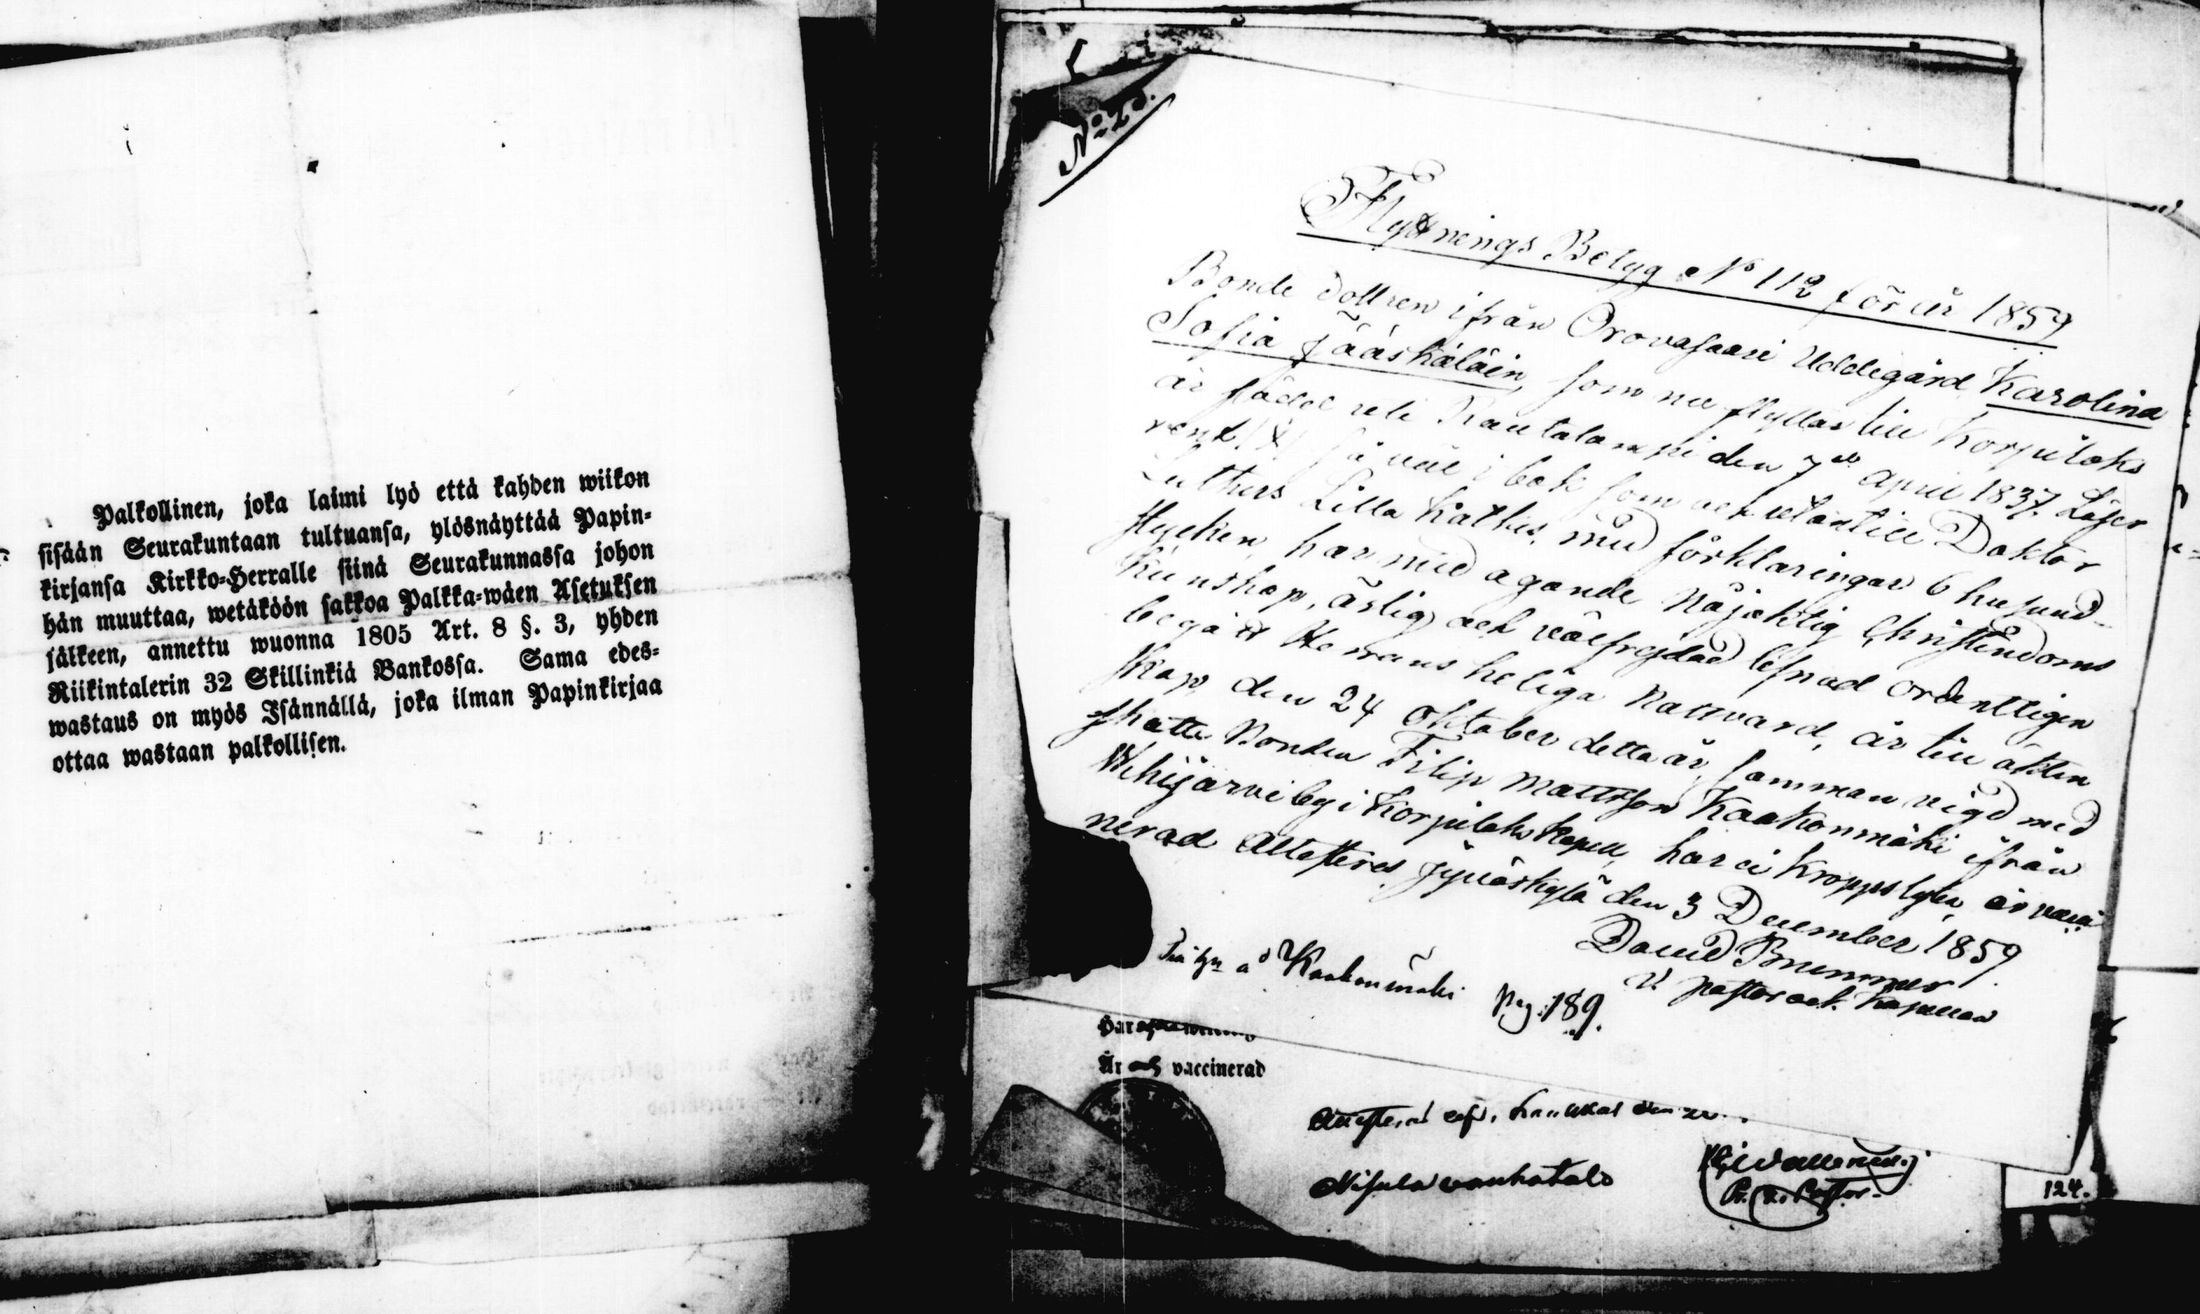 Palkollinen, joka laimi lyö että kahden wiikon
sisään Seurakuntaan tultuansa, ylösnäyttää Papin-
kirjansa Kirkko-Herralle siinä Seurakunnassa johon
hän muuttaa, wetäköön sakkoa Palkka-wäen Asetuksen
jälkeen, annettu wuonna 1805 Art. 8 §. 3, yhden
Riikintalerin 32 Skillinkiä Bankossa. Sama edes-
wastaus on myös Isännällä, joka ilman Papinkirjaa
ottaa wastaan palkollisen.
Flyttnings Betyg No 112 för år 1859
Bonde dottren ifrån Orovasaari Uddegård Karolina
Sofia Jääskäläin, som nu flyttar till Korpilaks
är född uti Rautalampi den 7de April 1837. Läser
rent så väl i bok som och utantill Doktor
Luthers Lilla Kathes. med förklaringar 6 husund-
stycken, har med ägande nöjaktig Christendoms
kunskap, ärlig och välfrejdad lefnad ordentligen
begått Herrans heliga Nattvard, är till äkten
skap den 24 Oktober detta år sammanvigd med
skatte Bonden Filip Mattsson Kaakonmäki ifrån
by i Korpilaks Kapell, har ei kroppslyten, är vacci
nerad Attesteras Jyväskylä den 3 December 1859
David Brummer
V Pastor och Kapellan
Kaakonmäki Pag. 189.
Är vaccinerad
Nisula vanhatalo
124.